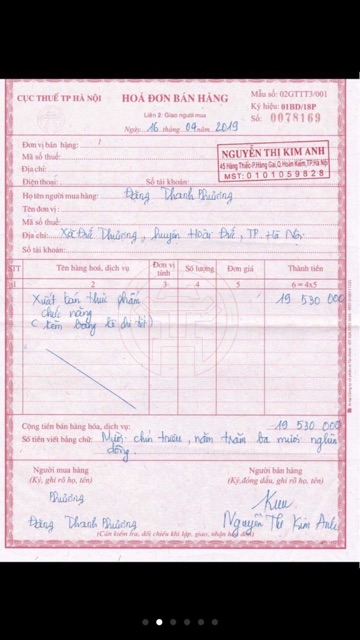 CỤC THUẾ TP HÀ NỘI
HOÁ ĐƠN BÁN HÀNG
Mẫu số: 02GTTT3/001
Liên 2: Giao người mua
Ký hiệu: 01BD/18P
Ngày: 16 tháng 09 năm 2019
Số: 0078169
Đơn vị bán hàng:
Mã số thuế:
Địa chỉ:
Điện thoại: Số tài khoản:
NGUYỄN THỊ KIM ANH
45 Hàng Thiếc-P.Hàng Gai,Q.Hoàn Kiếm,TP.Hà Nội
MST: 0101059828
Họ tên người mua hàng: Đặng Thanh Phương
Tên đơn vị:
Mã số thuế:
Địa chỉ: Xã Thượng, huyện Hoài Đức, TP. Hà Nội
Số tài khoản:
STT Tên hàng hoá, dịch vụ Đơn vị tính Số lượng Đơn giá Thành tiền
2 3 4 5 6 = 4x5
Xuất bán thực phẩm 19 530 000
chức năng
( kèm bảng kê chi tiết)
Cộng tiền bán hàng hóa, dịch vụ: 19 530 000
Số tiền viết bằng chữ: Mười chín triệu, năm trăm ba mươi nghìn
đồng.
Người mua hàng Người bán hàng
(Ký, ghi rõ họ, tên) (Ký,đóng dấu, ghi rõ họ, tên)
Phương
Đặng Thanh Phương
Nguyễn Thị Kim Anh
(Cần kiểm tra, đối chiếu khi lập, giao, nhận hoá đơn)